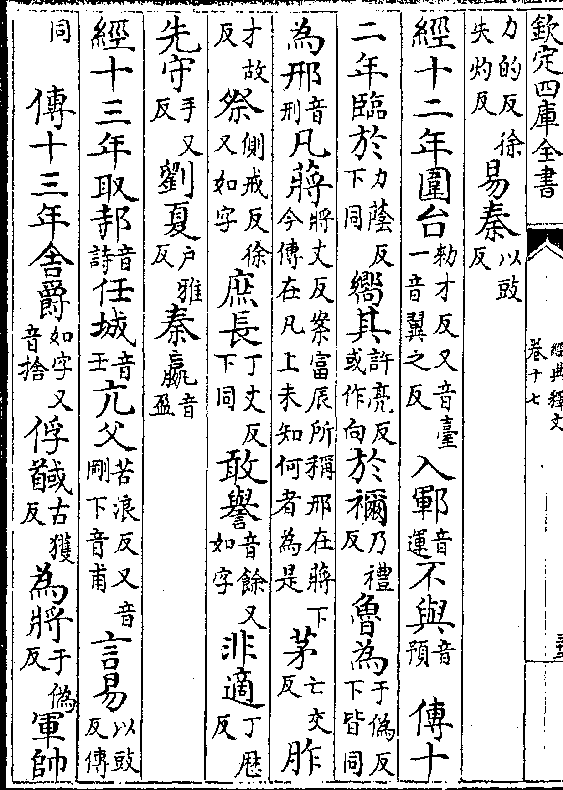 欽定四庫全書
經典釋文
卷十七
力的反徐失灼反易秦以豉反
經十二年圍台勑才反又音臺一音翼之反入鄆音運不與音預 傳十
二年臨於力蔭反下同嚮其許亮反或作向於禰乃禮反魯為于偽反下皆同
為邢音刑凡蔣將丈反案富辰所稱邢在蔣下今傳在凡上未知何者為是茅亡交反胙
才故反祭側戒反徐又如字庶長丁丈反下同敢譽音餘又如字非適丁厯反
先守手又反劉夏户雅反秦嬴音盈
經十三年取邿音詩任城音壬亢父苦浪反又音剛下音甫言易以豉反傳
同 傳十三年舍爵如字又音捨俘馘古獲反為將于偽反軍帥